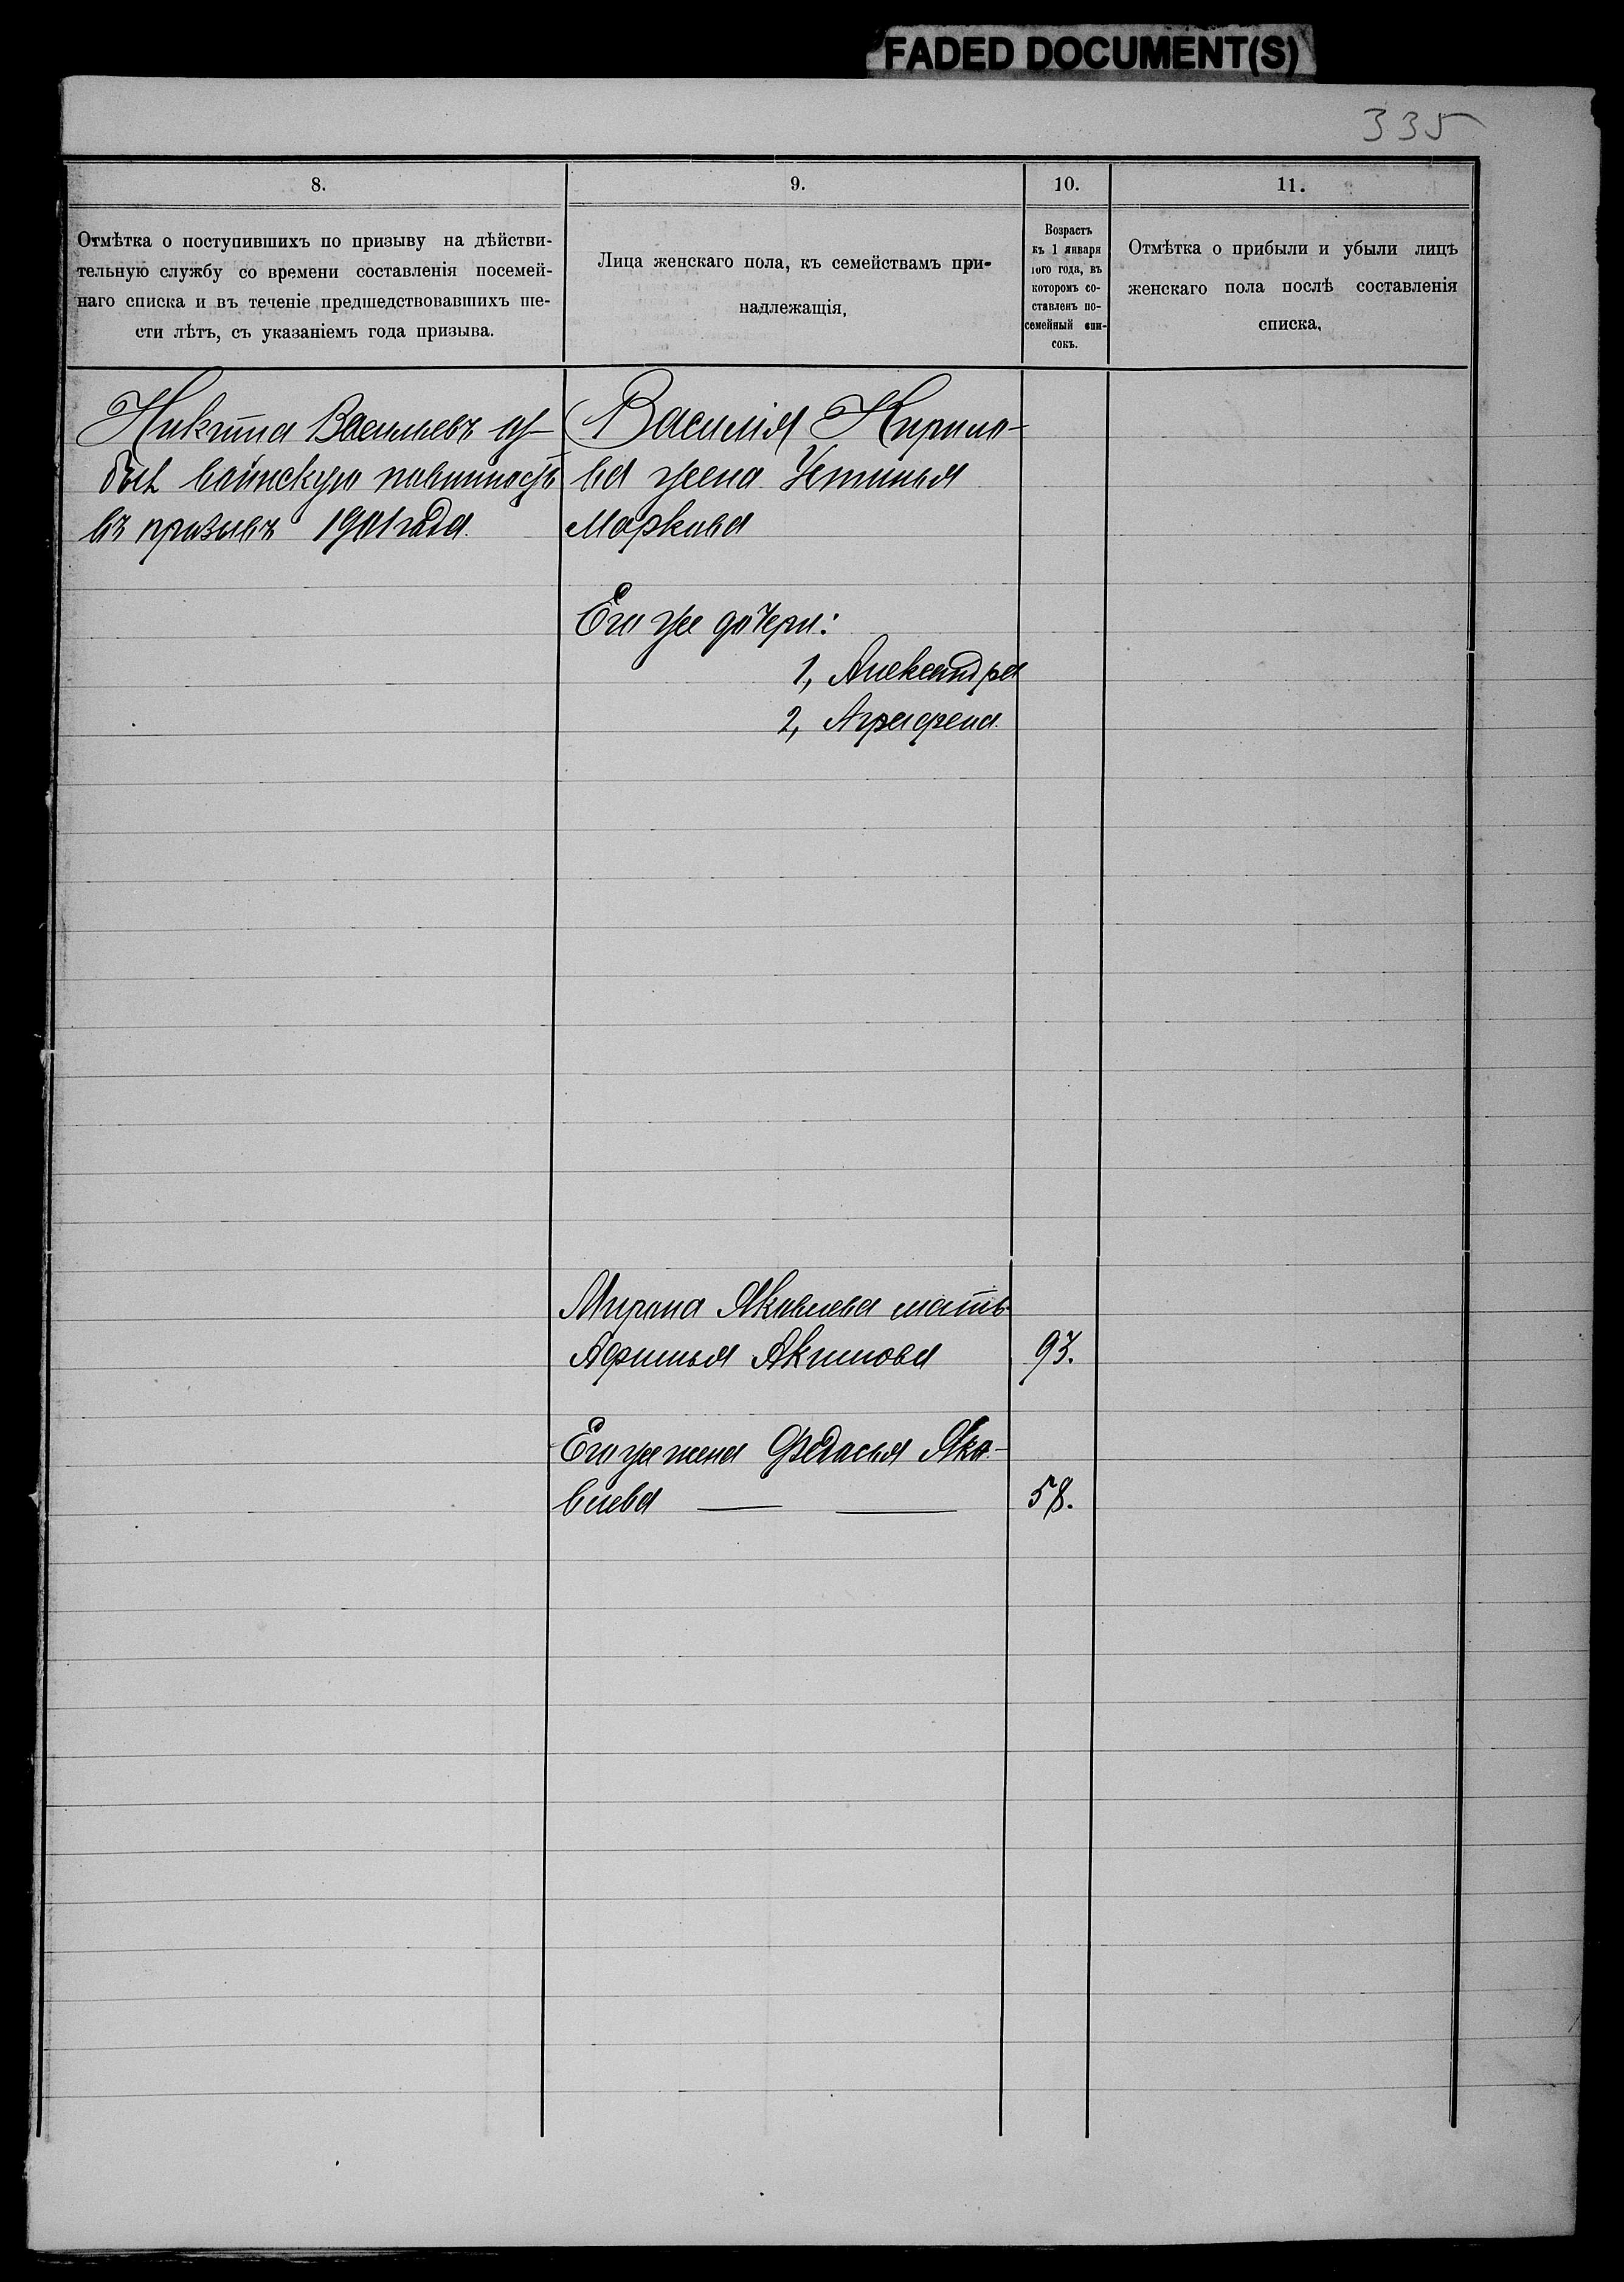 FADED DOCUMENT(S)
335
8.
9.
10.
11.
Отмѣтка о поступившихъ по призыву на дѣйстви-
тельную службу со времени составленія посемей-
наго списка и въ теченіе предшедствовавшихъ ше-
сти лѣтъ, съ указаніемъ года призыва.
Лица женскаго пола, къ семействамъ при-
надлежащія,
Возрастъ
къ 1 января
того года, въ
которомъ со-
ставленъ по-
семейный спи-
сокъ.
Отмѣтка о прибыли и убыли лицъ
женскаго пола послѣ составленія
списка,
Никита Васильевъ от-
был воинскую повинность
въ призывъ 1901 года.
Василія Кирило-
ва жена Устинья
Маркова
Его же дочери:
1, Александра
2, Аграфена.
Мирона Яковлева мать
Афимья Акимова 93.
Его же жена Федосья Яко-
влева 58.